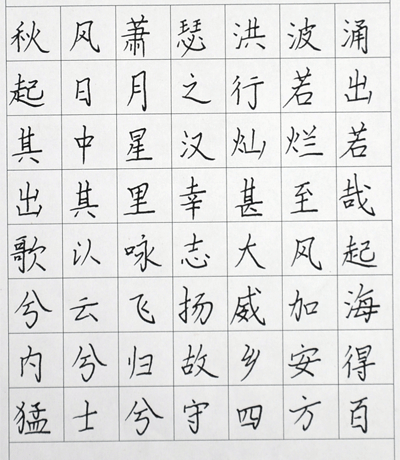 秋风萧瑟洪波涌
起日月之行若出
其中星汉灿烂若
出其里幸甚至哉
歌以咏志大风起
兮云飞扬威加海
内兮归故乡安得
猛士兮守四方百